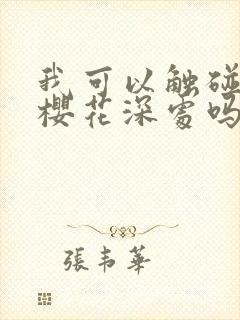 我可以触碰
櫻花深處吗
張韦華